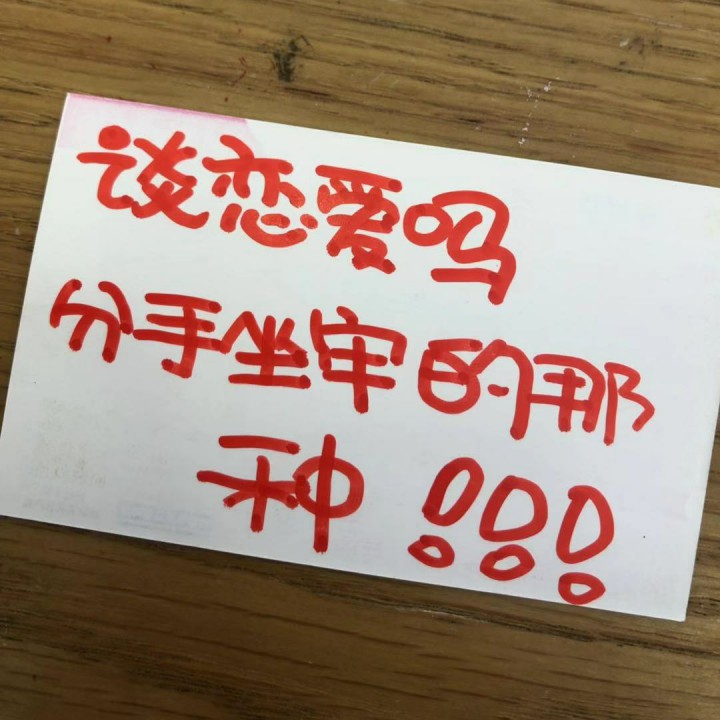 谈恋爱吗
分手坐牢的那
种!!!